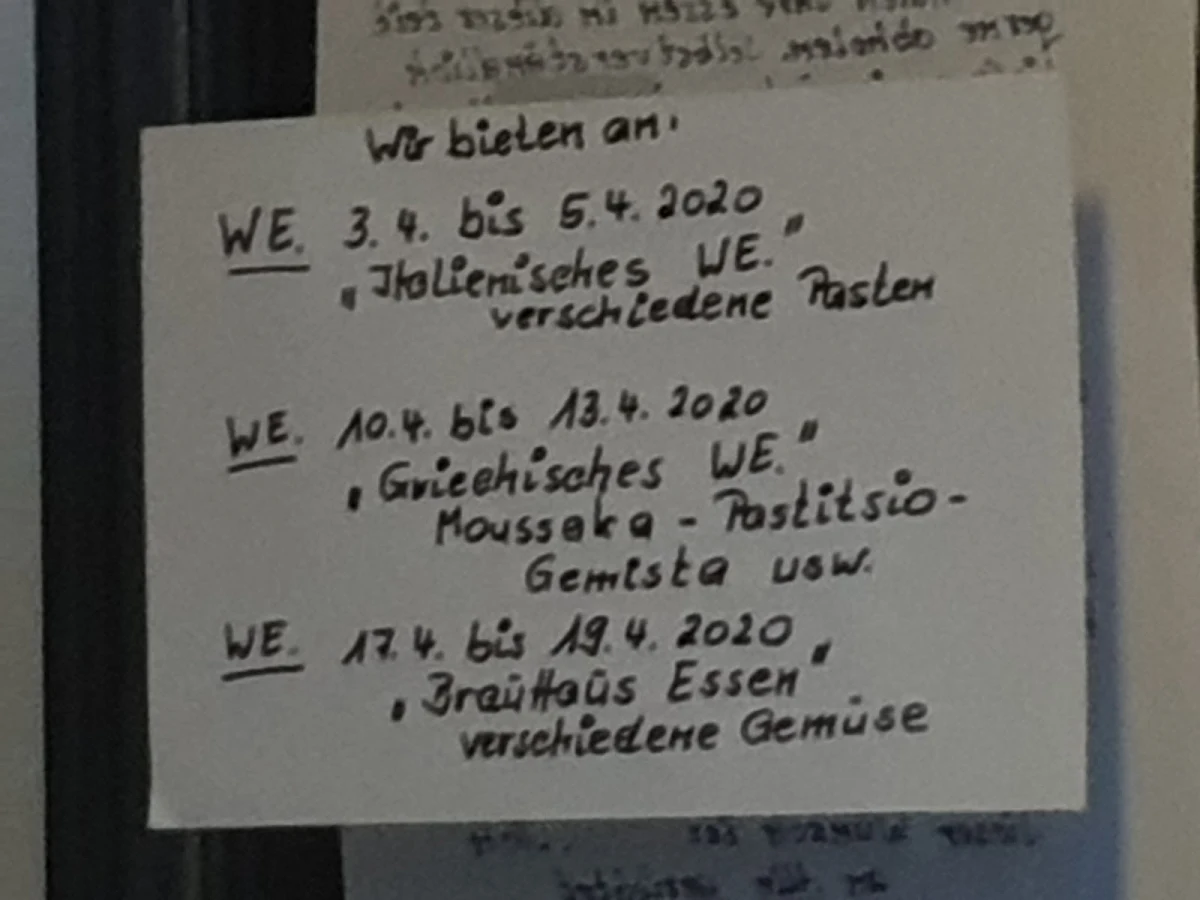 Wir bieten an:
WE. 3.4. bis 5.4. 2020
„Italienisches WE."
verschiedene Pasten
WE. 10.4. bis 13.4. 2020
„Griechisches WE."
Moussaka - Pastitsio -
Gemista usw.
WE. 17.4. bis 19.4. 2020
„BrauHaus Essen"
verschiedene Gemüse